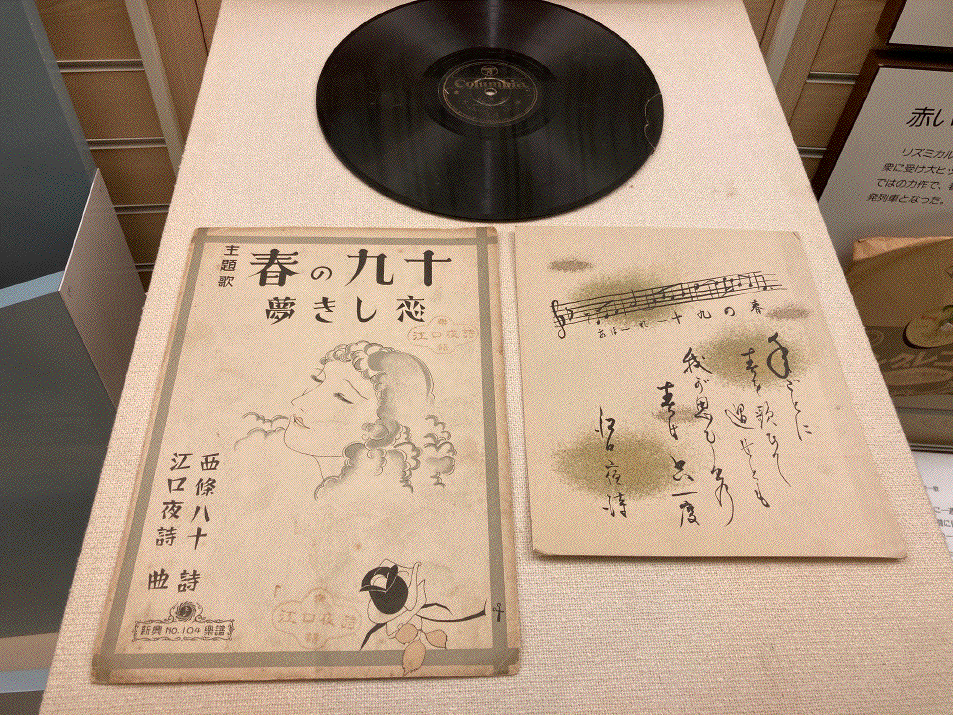 Columbia
主題歌
十九の春
恋しき夢
江口夜詩
西條八十 詩
江口夜詩 曲
新興 NO.104 楽譜
江口夜詩
春の九十
年ごとに
春を歌ひし
過せども
我が思ひ出の
春は只一度
江口夜詩
赤い
リズミカル
衆に受け大ヒッ
ではの力作で、
発列車となった。